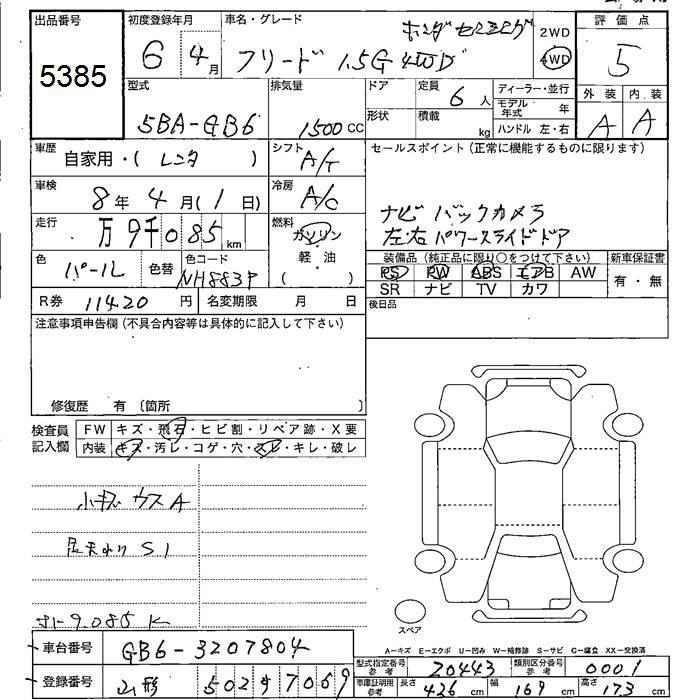 出品番号 初度登録年月 車名・グレード ホンダセンシング 2WD 評価点
5385 6 4月 フリード 1.5G 4WD 4WD 5
型式 排気量 ドア 定員 6人 ディーラー・並行 モデル年式 年 外装 内装
5BA-GB6 1500cc 形状 積載 kg ハンドル 左・右 A A
車歴 自家用・( レンタ ) シフト A/T セールスポイント(正常に機能するものに限ります)
車検 8年4月(1日) 冷房 A/C
ナビ バックカメラ
走行 万9千085km 燃料 ガソリン・軽油 ( )
左右パワースライドドア
色 パール 色替 色コード NH883P
装備品(純正品に限り○をつけて下さい) 新車保証書
PS PW ABS エアB AW 有・無
SR ナビ TV カワ
R券 11420円 名変期限 月 日 後日品
注意事項申告欄(不具合内容等は具体的に記入して下さい)
修復歴 有〔箇所 〕
検査員記入欄 FW キズ・飛石・ヒビ割・リペア跡・X要
内装 キズ・汚レ・コゲ・穴・スレ・キレ・破レ
小キズ ウス A
S1
オド 9.085K
スペア
A-キズ E-エクボ U-凹み W-補修跡 S-サビ C-腐立 XX-交換済
車台番号 GB6-3207804 型式指定番号 参考 20443 類別区分番号 参考 0001
登録番号 山形 502 7069 車庫証明用 参考 長さ 426cm 幅 169cm 高さ 173cm